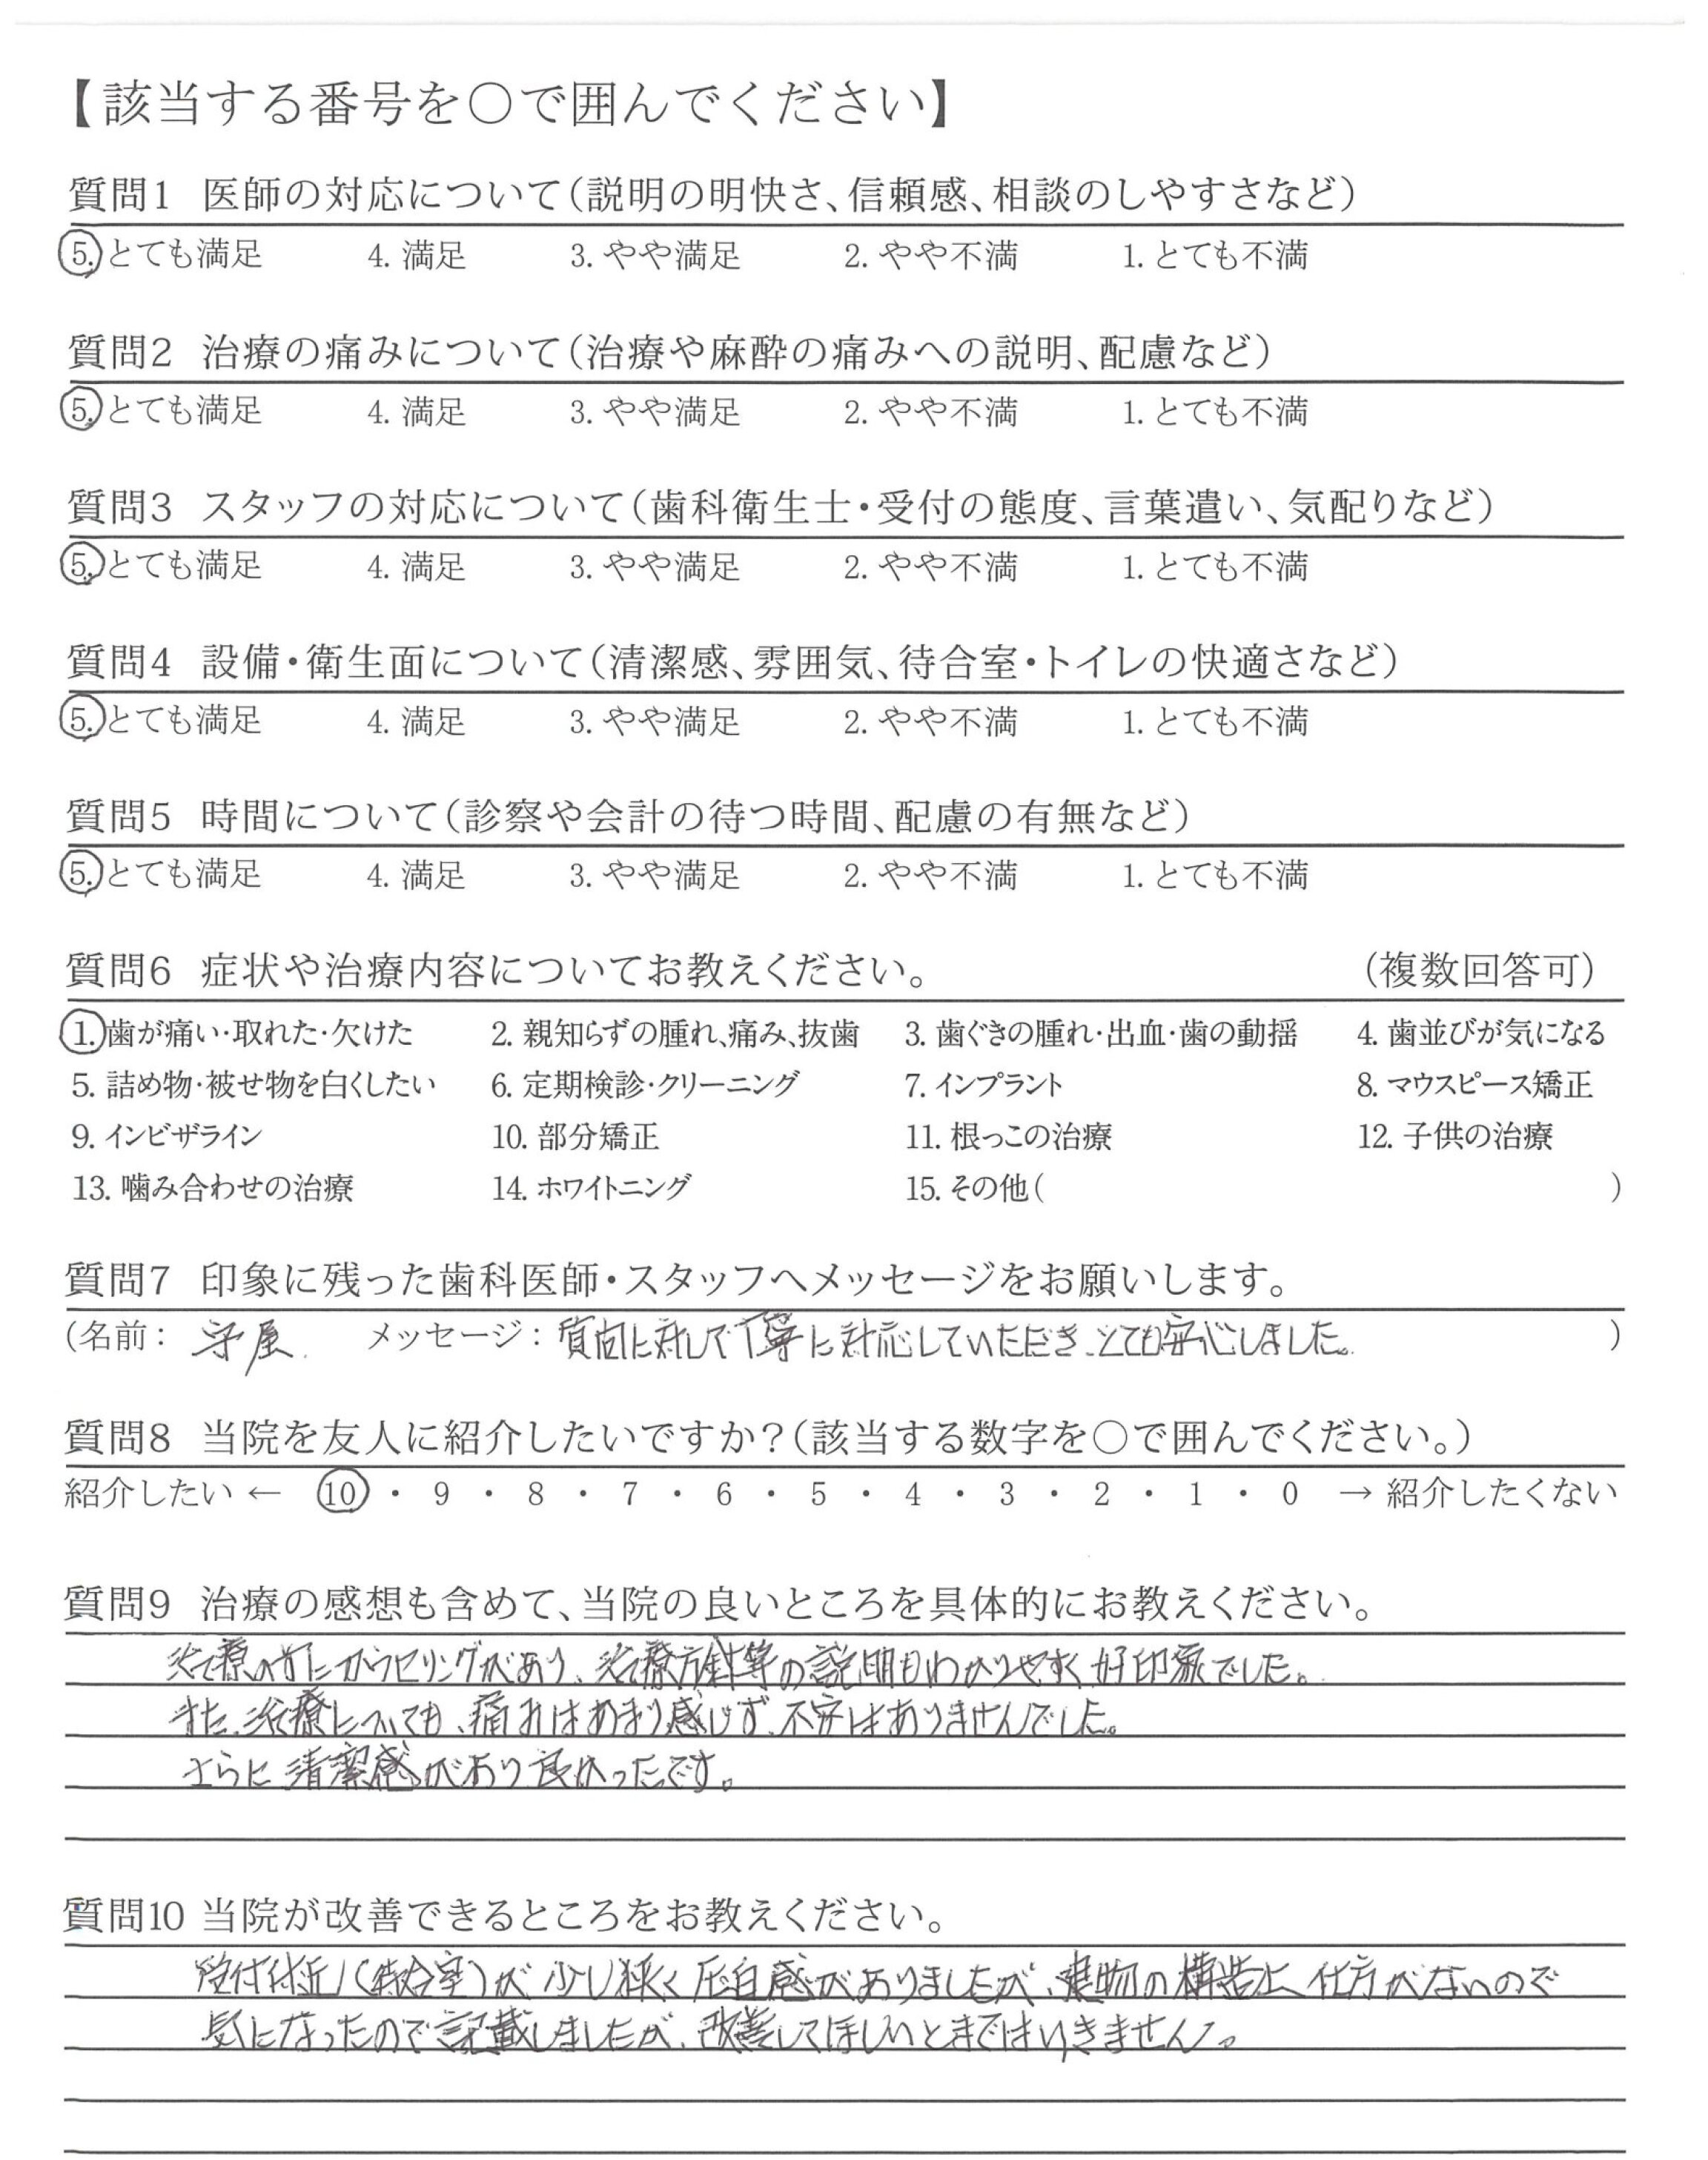 【該当する番号を○で囲んでください】
質問1 医師の対応について(説明の明快さ、信頼感、相談のしやすさなど)
5. とても満足 4. 満足 3. やや満足 2. やや不満 1. とても不満
質問2 治療の痛みについて(治療や麻酔の痛みへの説明、配慮など)
5. とても満足 4. 満足 3. やや満足 2. やや不満 1. とても不満
質問3 スタッフの対応について(歯科衛生士・受付の態度、言葉遣い、気配りなど)
5. とても満足 4. 満足 3. やや満足 2. やや不満 1. とても不満
質問4 設備・衛生面について(清潔感、雰囲気、待合室・トイレの快適さなど)
5. とても満足 4. 満足 3. やや満足 2. やや不満 1. とても不満
質問5 時間について(診察や会計の待つ時間、配慮の有無など)
5. とても満足 4. 満足 3. やや満足 2. やや不満 1. とても不満
質問6 症状や治療内容についてお教えください。 (複数回答可)
1. 歯が痛い・取れた・欠けた 2. 親知らずの腫れ、痛み、抜歯 3. 歯ぐきの腫れ・出血・歯の動揺 4. 歯並びが気になる
5. 詰め物・被せ物を白くしたい 6. 定期検診・クリーニング 7. インプラント 8. マウスピース矯正
9. インビザライン 10. 部分矯正 11. 根っこの治療 12. 子供の治療
13. 噛み合わせの治療 14. ホワイトニング 15. その他( )
質問7 印象に残った歯科医師・スタッフへメッセージをお願いします。
(名前: 守屋 メッセージ: 質問に対して丁寧に対応していただき、とても安心しました。 )
質問8 当院を友人に紹介したいですか?(該当する数字を○で囲んでください。)
紹介したい ← 10 ・ 9 ・ 8 ・ 7 ・ 6 ・ 5 ・ 4 ・ 3 ・ 2 ・ 1 ・ 0 → 紹介したくない
質問9 治療の感想も含めて、当院の良いところを具体的にお教えください。
治療の前にカウンセリングがあり、治療方針等の説明もわかりやすく好印象でした。
また、治療についても、痛みはあまり感じず、不安はありませんでした。
さらに清潔感があり良かったです。
質問10 当院が改善できるところをお教えください。
受付付近(待合室)が少し狭く圧迫感がありましたが、建物の構造上仕方がないので
気になったので記載しましたが、改善してほしいとまではいきません。